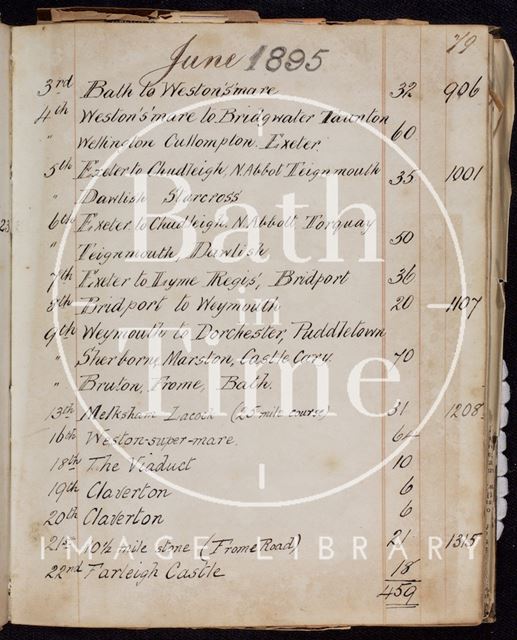 79
June 1895
3rd Bath to Weston's'mare 32 906
4th Weston's'mare to Bridgwater Taunton
" Wellington Cullompton. Exeter. 60
5th Exeter to Chudleigh, N. Abbot Teignmouth 35 1001
" Dawlish Starcross
6th Exeter to Chudleigh. N. Abbott, Torquay
" Teignmouth, Dawlish 50
7th Exeter to Lyme Regis', Bridport 36
8th Bridport to Weymouth 20 1107
9th Weymouth to Dorchester, Puddletown
" Sherborn, Marston, Castle Carry. 70
" Bruton, Frome, Bath.
13th Melksham Lacock (25 mile course) 31 1208
16th Weston-super-mare. 64
18th The Viaduct 10
19th Claverton 6
20th Claverton 6
21st 10½ mile stone (Frome Road) 21 1315
22nd Farleigh Castle 18
459
23
Bath
in
Time
IMAGE LIBRARY